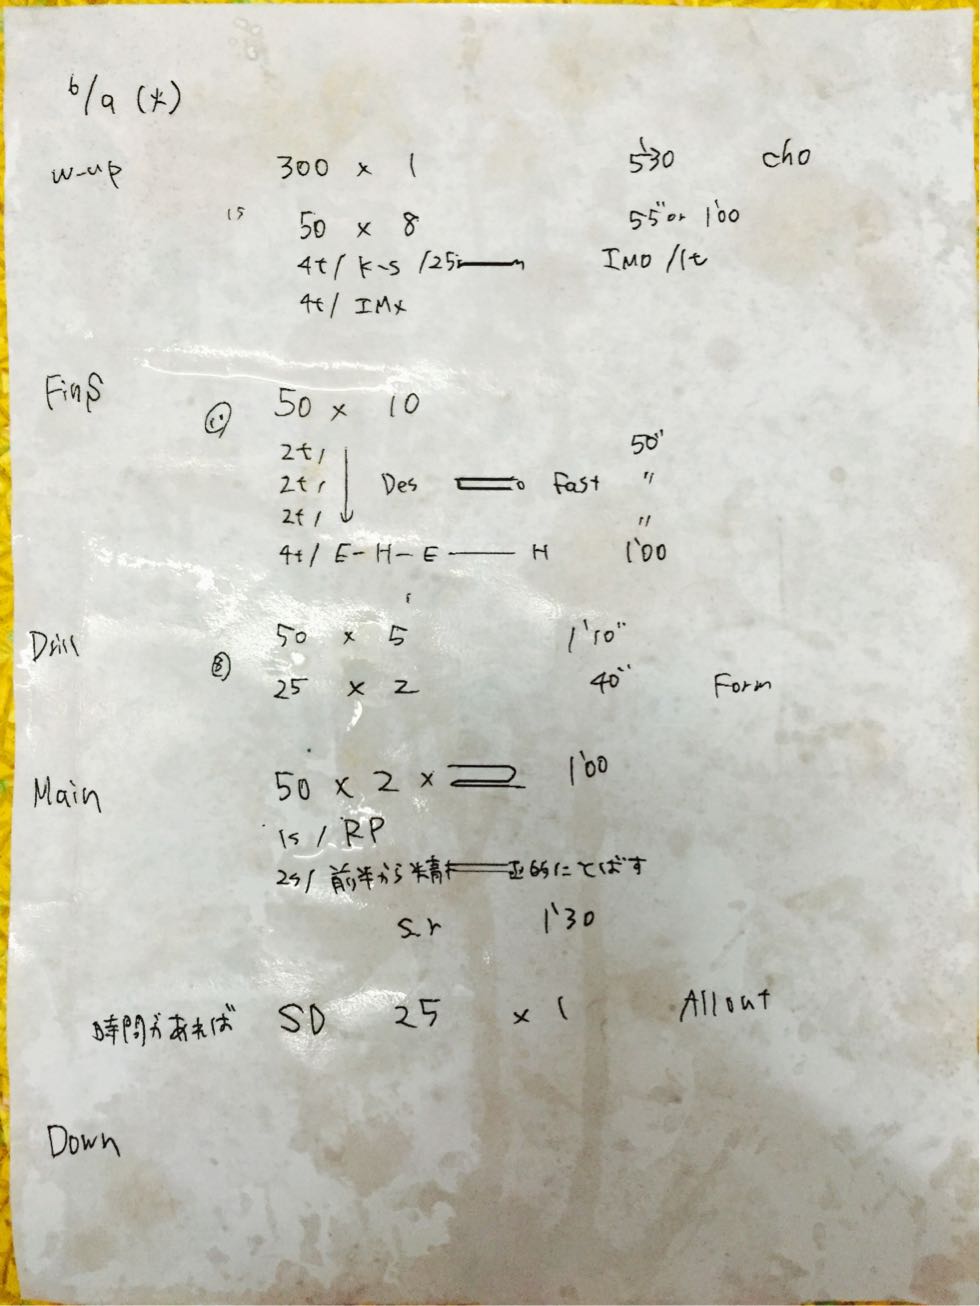 6/9 (火)
W-up 300 x 1 5'30 cho
1s 50 x 8 55" or 1'00
4t/ K-S /25 IMO /1t
4t/ IMx
Fins ① 50 x 10
2t/ 50"
2t/ Des Fast "
2t/ "
4t/ E-H-E H 1'00
Drill 50 x 5 1'10"
③ 25 x 2 40" Form
Main 50 x 2 x 1'00
1s / RP
2s/ 前半から積 にとばす
Sr 1'30
時間があれば SD 25 x 1 Allout
Down